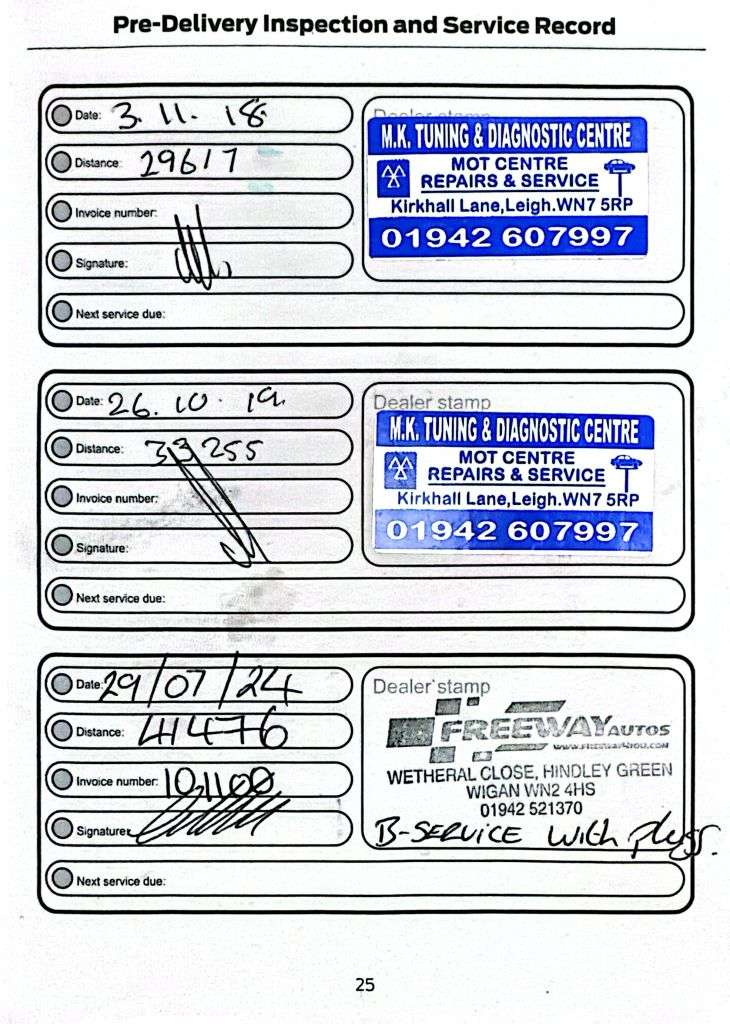 Pre-Delivery Inspection and Service Record
Date: 3.11.18
Distance: 29617
Invoice number:
Signature:
Next service due:
Dealer stamp
M.K. TUNING & DIAGNOSTIC CENTRE
MOT CENTRE
REPAIRS & SERVICE
Kirkhall Lane,Leigh.WN7 5RP
01942 607997
Date: 26.10.19
Distance: 33255
Invoice number:
Signature:
Next service due:
Dealer stamp
M.K. TUNING & DIAGNOSTIC CENTRE
MOT CENTRE
REPAIRS & SERVICE
Kirkhall Lane,Leigh.WN7 5RP
01942 607997
Date: 29/07/24
Distance: 41476
Invoice number: 101100
Signature:
Next service due:
Dealer stamp
FREEWAY AUTOS
WETHERAL CLOSE, HINDLEY GREEN
WIGAN WN2 4HS
01942 521370
B-SERVICE with plugs.
25